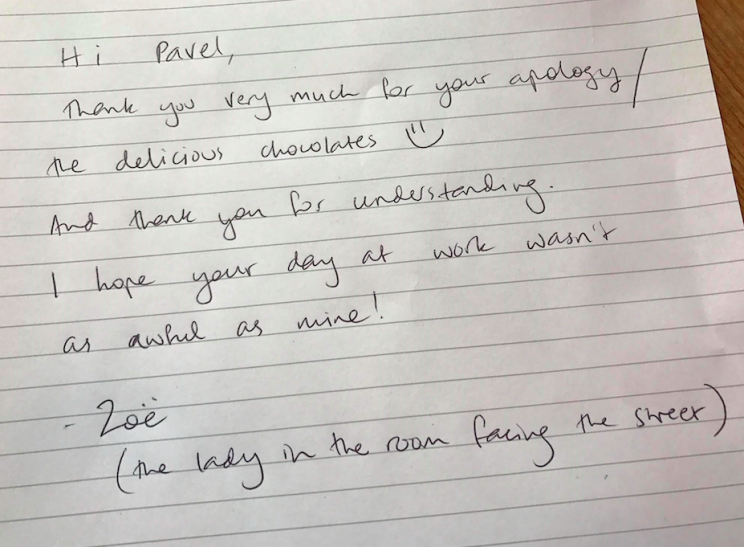 Hi Pavel,
Thank you very much for your apology/
the delicious chocolates
And thank you for understanding.
I hope your day at work wasn't
as awful as mine!
- Zoë
(the lady in the room facing the street)